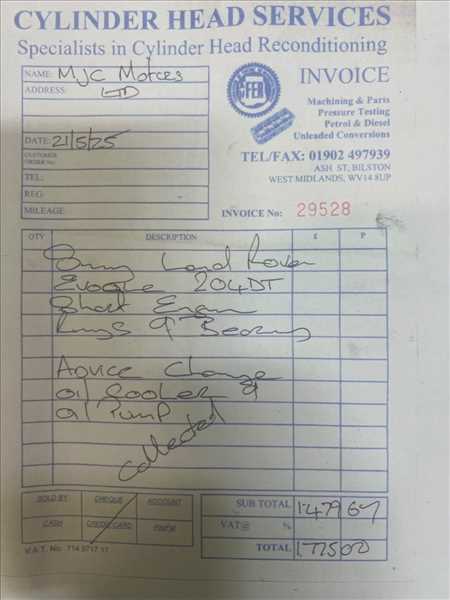 CYLINDER HEAD SERVICES
Specialists in Cylinder Head Reconditioning
NAME: MJC Motors
ADDRESS: LTD
DATE: 21/5/25
CUSTOMER ORDER No:
TEL:
REG:
MILEAGE:
INVOICE
FER
Machining & Parts
Pressure Testing
Petrol & Diesel
Unleaded Conversions
TEL/FAX: 01902 497939
ASH ST, BILSTON
WEST MIDLANDS, WV14 8UP
INVOICE No: 29528
QTY DESCRIPTION £ P
Land Rover
Evoque 204DT
Short Engin
Rings & Bearings
Advice Change
oil Cooler &
oil Pump
collected
SOLD BY CHEQUE ACCOUNT
CASH CREDIT CARD
V.A.T. No: 714 9717 17
SUB TOTAL 1479 67
VAT @ %
TOTAL 1775 00